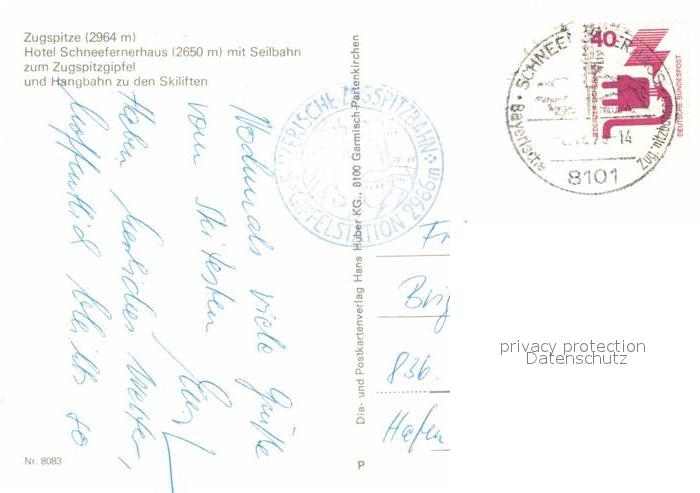 Zugspitze (2964 m)
Hotel Schneefernerhaus (2650 m) mit Seilbahn
zum Zugspitzgipfel
und Hangbahn zu den Skiliften
Nochmals viele Grüße
vom Skitesten
Haben herrliches Wetter,
hoffentlich bleibt's so
BAYERISCHE ZUGSPITZBAHN
GIPFELSTATION 2966m
Dia- und Postkartenverlag Hans Huber KG., 8100 Garmisch-Partenkirchen
P
Nr. 8083
SCHNEEFERNERHAUS
8101
40
DEUTSCHE BUNDESPOST
Fr
Brig
836.
Hafen
privacy protection
Datenschutz